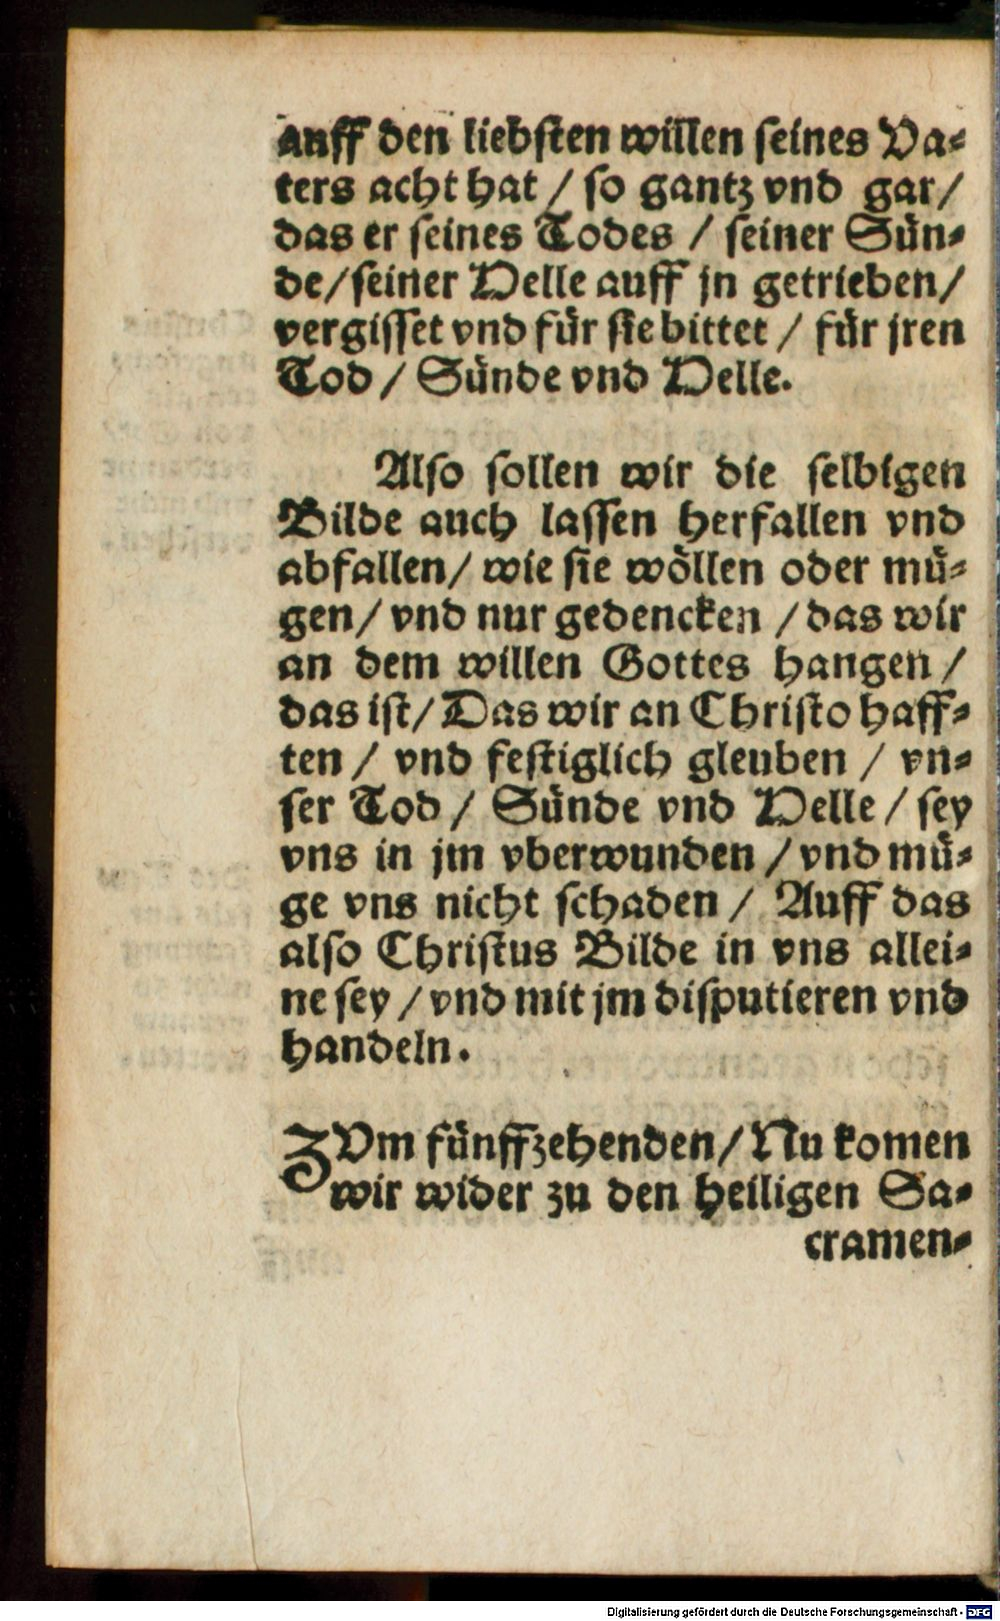 auff den liebsten willen seines Va-
ters acht hat / so gantz vnd gar/
das er seines Todes / seiner Sün-
de/seiner Helle auff jn getrieben/
vergisset vnd für sie bittet / für jren
Tod / Sünde vnd Helle.
Also sollen wir die selbigen
Bilde auch lassen herfallen vnd
abfallen/ wie sie wöllen oder mü-
gen/ vnd nur gedencken /das wir
an dem willen Gottes hangen /
das ist/ Das wir an Christo haff-
ten / vnd festiglich gleuben / vn-
ser Tod / Sünde vnd Helle / sey
vns in jm vberwunden / vnd mü-
ge vns nicht schaden / Auff das
also Christus Bilde in vns allei-
ne sey / vnd mit jm disputieren vnd
handeln.
ZVm fünffzehenden/ Nu komen
wir wider zu den heiligen Sa-
cramen-
Digitalisierung gefördert durch die Deutsche Forschungsgemeinschaft - DFG